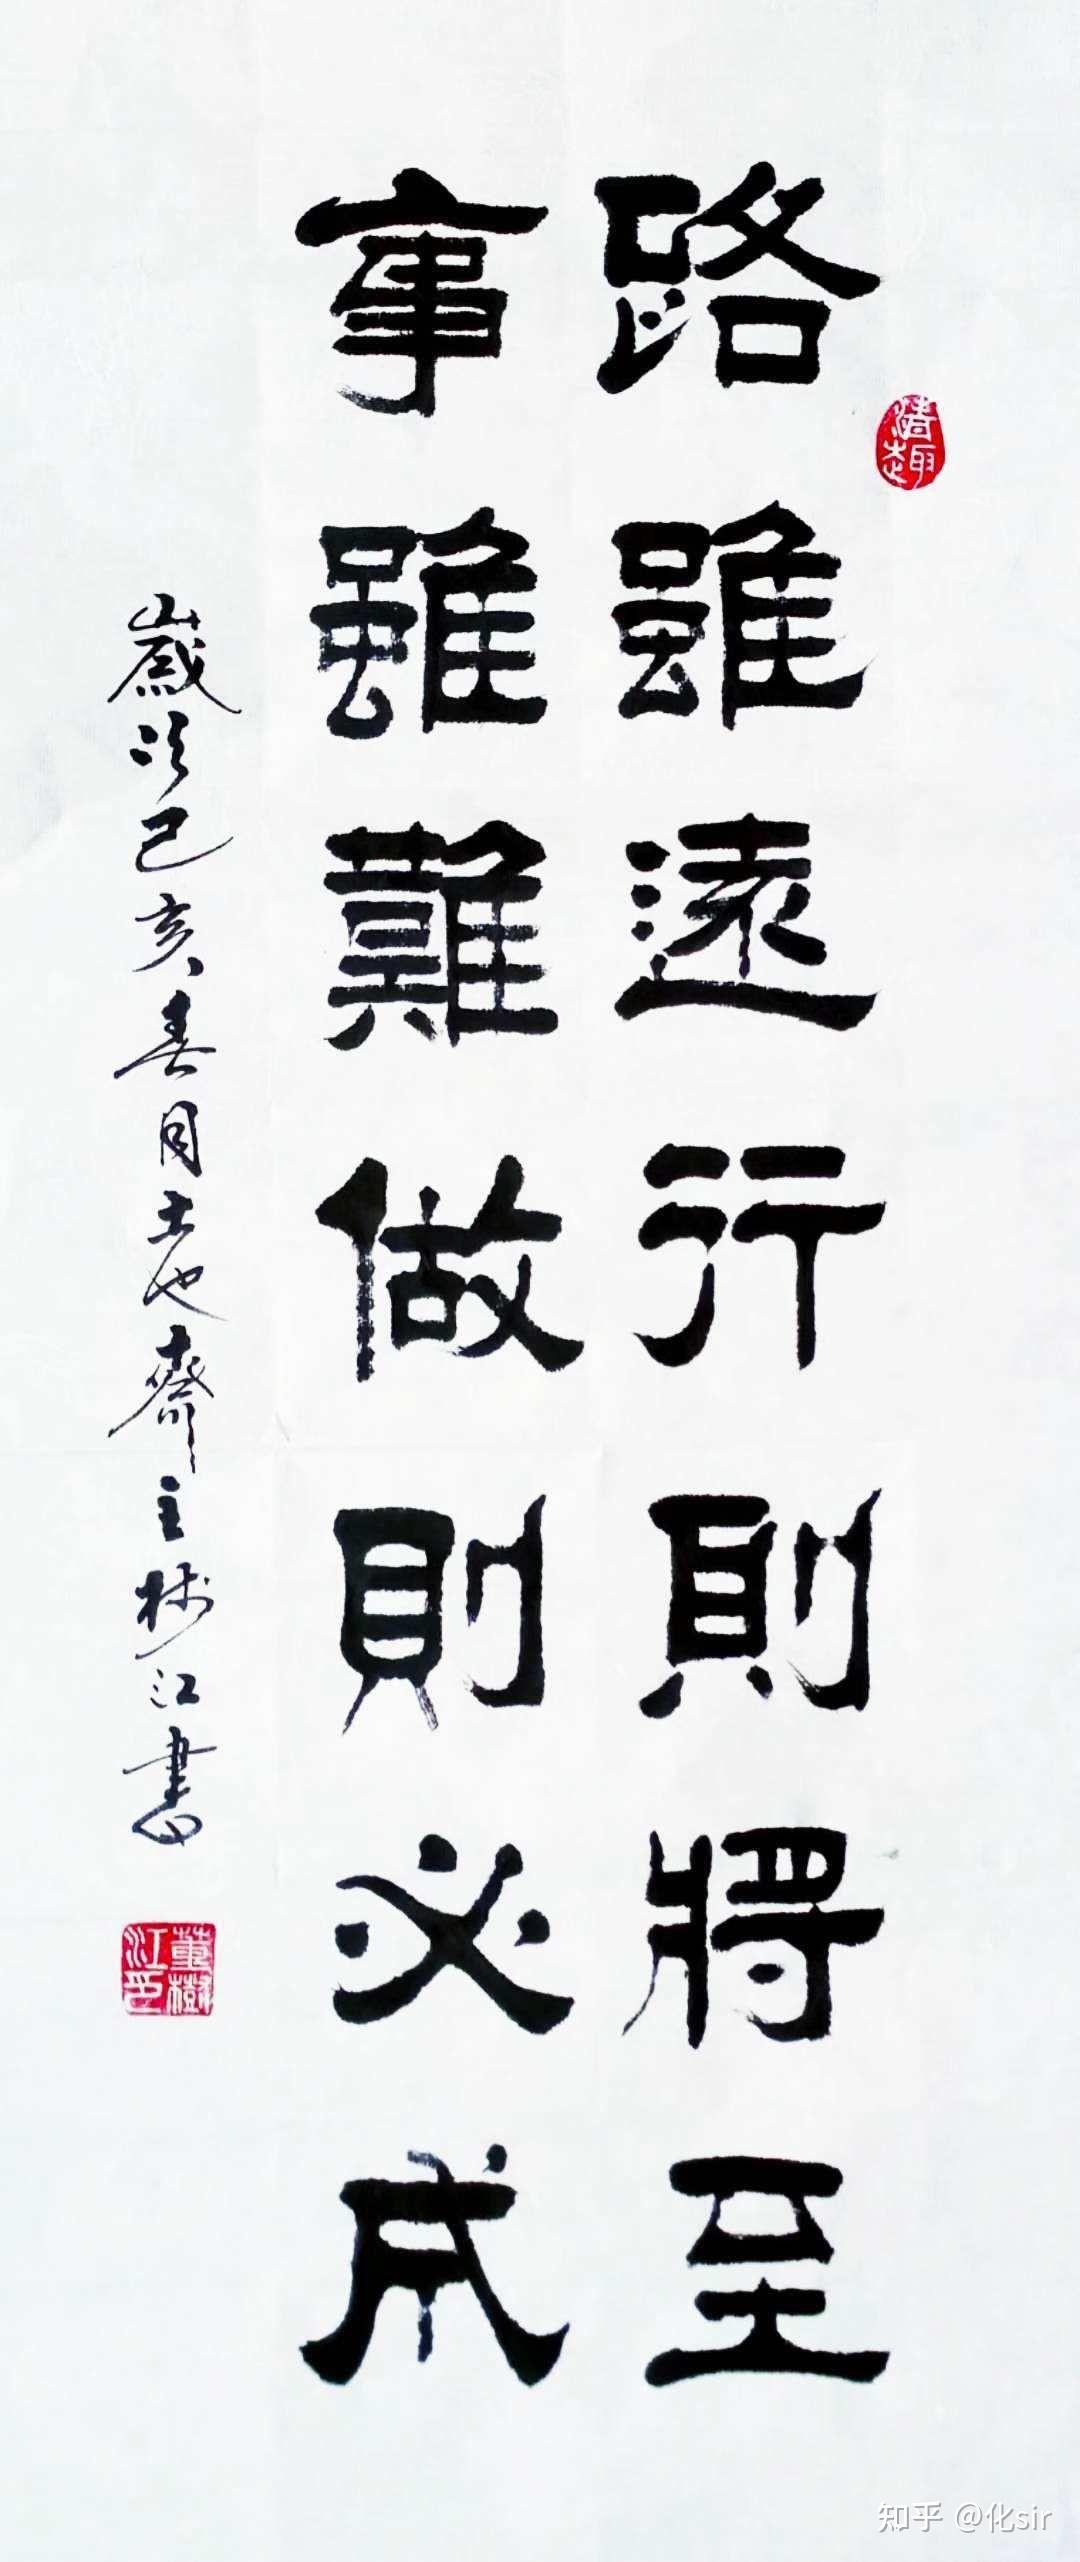 路雖遠行則將至
事雖難做則必成
歲次己亥春月土也齋主樹江書
清趣
董樹江印
知乎 @化sir